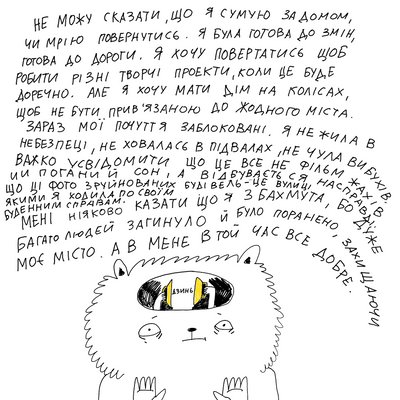 НЕ МОЖУ СКАЗАТИ, ЩО Я СУМУЮ ЗА ДОМОМ,
ЧИ МРІЮ ПОВЕРНУТИСЬ. Я БУЛА ГОТОВА ДО ЗМІН,
ГОТОВА ДО ДОРОГИ. Я ХОЧУ ПОВЕРТАТИСЬ ЩОБ
РОБИТИ РІЗНІ ТВОРЧІ ПРОЕКТИ, КОЛИ ЦЕ БУДЕ
ДОРЕЧНО. АЛЕ Я ХОЧУ МАТИ ДІМ НА КОЛІСАХ,
ЩОБ НЕ БУТИ ПРИВ'ЯЗАНОЮ ДО ЖОДНОГО МІСТА.
ЗАРАЗ МОЇ ПОЧУТТЯ ЗАБЛОКОВАНІ. Я НЕ ЖИЛА В
НЕБЕЗПЕЦІ, НЕ ХОВАЛАСЬ В ПІДВАЛАХ, НЕ ЧУЛА ВИБУХІВ.
ВАЖКО УСВІДОМИТИ ЩО ЦЕ ВСЕ НЕ ФІЛЬМ ЖАХІВ,
ЧИ ПОГАНИЙ СОН, А ВІДБУВАЄТЬСЯ НАСПРАВДІ,
ЩО ЦІ ФОТО ЗРУЙНОВАНИХ БУДІВЕЛЬ - ЧЕ ВУЛИЦІ,
ЯКИМИ Я ХОДИЛА ПО СВОЇМ
БУДЕННИМ СПРАВАМ.
МЕНІ НІЯКОВО КАЗАТИ ЩО Я З БАХМУТА, БО ДУЖЕ
БАГАТО ЛЮДЕЙ ЗАГИНУЛО Й БУЛО ПОРАНЕНО, ЗАХИЩАЮЧИ
МОЄ МІСТО. А В МЕНЕ В ТОЙ ЧАС ВСЕ ДОБРЕ.
ДЗИНЬ